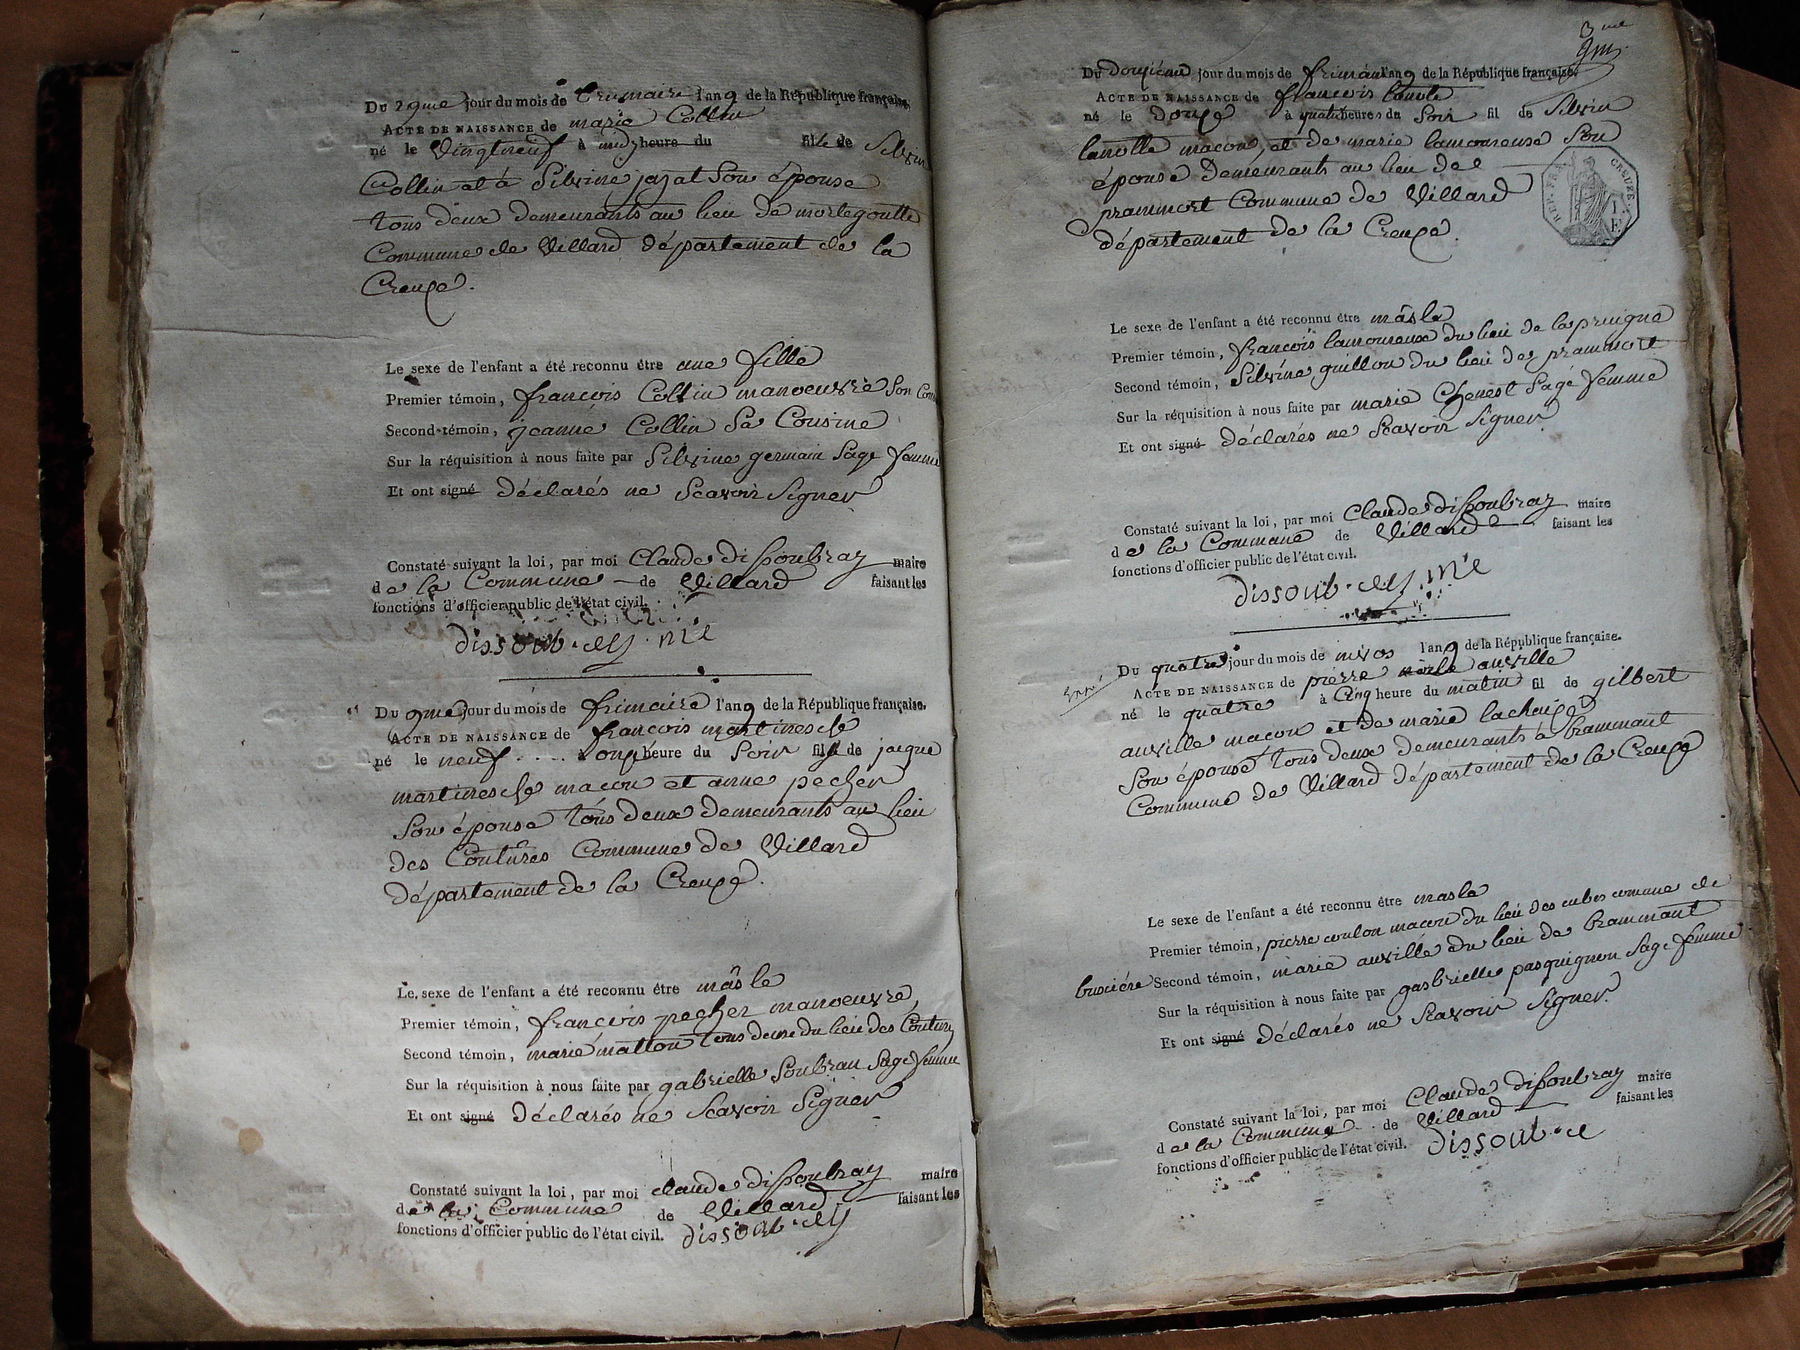 Du 29me jour du mois de brumaire l'an 9 de la République française.
ACTE DE NAISSANCE de marie Collin
né le vingtneuf à midy heure du fille de Silvin
Collin et à Silvine jazat Son épouse
tous deux demeurants au lieu de mortegoutte
Commune de Villard département de la
Creuse.
Le sexe de l'enfant a été reconnu être une fille
Premier témoin, francois Collin manoeuvre Son
Second témoin, jeanne Collin Sa Cousine
Sur la réquisition à nous faite par Silvine germain Sage femme
Et ont signé déclarés ne Scavoir Signer
Constaté suivant la loi, par moi Claude dissoubray maire
de la Commune de Villard faisant les
fonctions d'officier public de l'état civil.
dissoub
Du 9me jour du mois de frimaire l'an 9 de la République française.
ACTE DE NAISSANCE de francois martinesche
né le neuf .... onze heure du Soir fils de jacque
martinesche macon et anne pecher
Son épouse tous deux demeurants au lieu
des Coutures Commune de Villard
département de la Creuse.
Le sexe de l'enfant a été reconnu être mâsle
Premier témoin, francois pecher manoeuvre
Second témoin, marie matton tous deux du lieu des Couture
Sur la réquisition à nous faite par gabrielle Soubran Sage femme
Et ont signé déclarés ne Scavoir Signer
Constaté suivant la loi, par moi claude dissoubray maire
de la Commune de Villard faisant les
fonctions d'officier public de l'état civil. dissoub
3me
Du jour du mois de frimaire l'an 9 de la République française.
ACTE DE NAISSANCE de francois
né le douze à quatre heures du Soir fil de Silvin
macon, et de marie lamoureuse Son
épouse demeurants au lieu de
prammort Commune de Villard
département de la Creuse.
REP. FRA. CREUZE.
Le sexe de l'enfant a été reconnu être mâsle
Premier témoin, francois lamoureux du lieu de la pruigne
Second témoin, Silvine guillon du lieu de prammort
Sur la réquisition à nous faite par marie Chenest Sage femme
Et ont signé déclarés ne Scavoir Signer
Constaté suivant la loi, par moi Claude dissoubray maire
de la Commune de Villard faisant les
fonctions d'officier public de l'état civil.
dissoub
Du quatre jour du mois de nivos l'an 9 de la République française.
ACTE DE NAISSANCE de pierre auville
né le quatre à Cinq heure du matin fil de gilbert
auville macon et de marie lachaize
Son épouse tous deux demeurants à brammant
Commune de Villard département de la Creuse
Le sexe de l'enfant a été reconnu être masle
Premier témoin, pierre coulon macon du lieu des cubes comune de
bussiére Second témoin, marie auville du lieu de brammant
Sur la réquisition à nous faite par gasbrielle pasquignon Sage femme
Et ont signé déclarés ne Scavoir Signer.
Constaté suivant la loi, par moi Claude dissoubray maire
de la Commune de Villard faisant les
fonctions d'officier public de l'état civil. dissoub